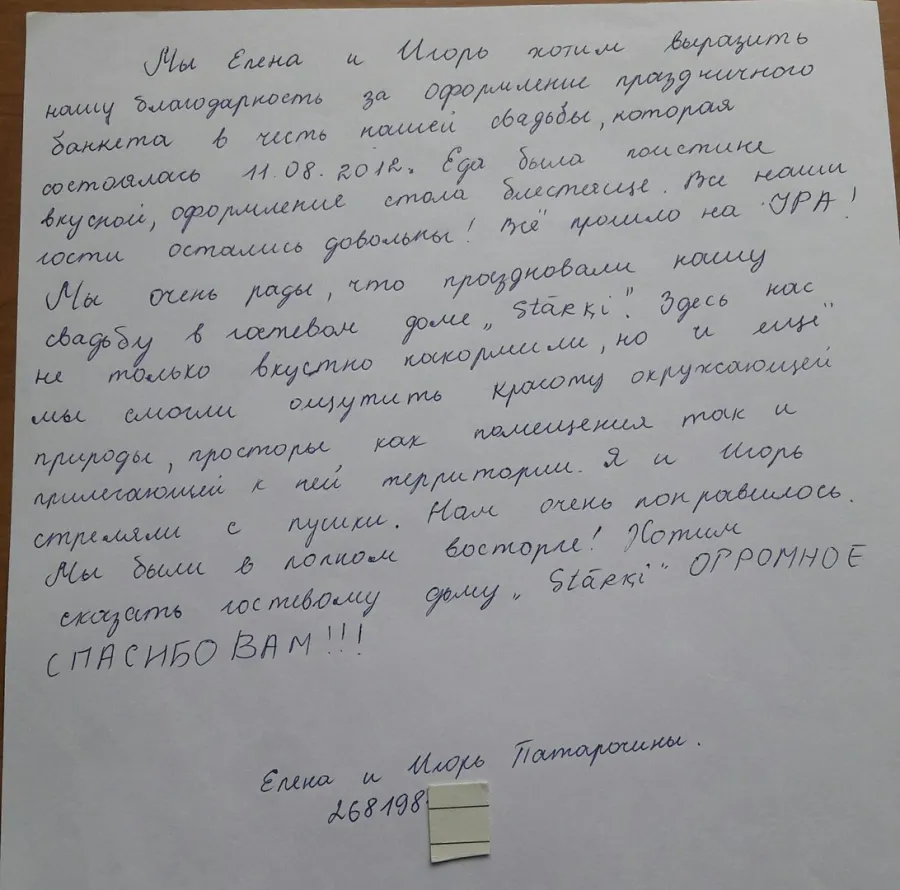 Мы Елена и Игорь хотим выразить
нашу благодарность за оформление праздничного
банкета в честь нашей свадьбы, которая
состоялась 11.08.2012. Еда была поистине
вкусной, оформление стола блестяще. Все наши
гости остались довольны! Всё прошло на УРА!
Мы очень рады, что праздновали нашу
свадьбу в гостевом доме „Stārķi". Здесь нас
не только вкустно накормили, но и ещё
мы смогли ощутить красоту окружающей
природы, просторы как помещения так и
прилегающей к ней территории. Я и Игорь
стреляли с пушки. Нам очень понравилось.
Мы были в полном восторге! Хотим
сказать гостевому дому „Stārķi" ОГРОМНОЕ
СПАСИБО ВАМ!!!
Елена и Игорь Патарочины.
268198